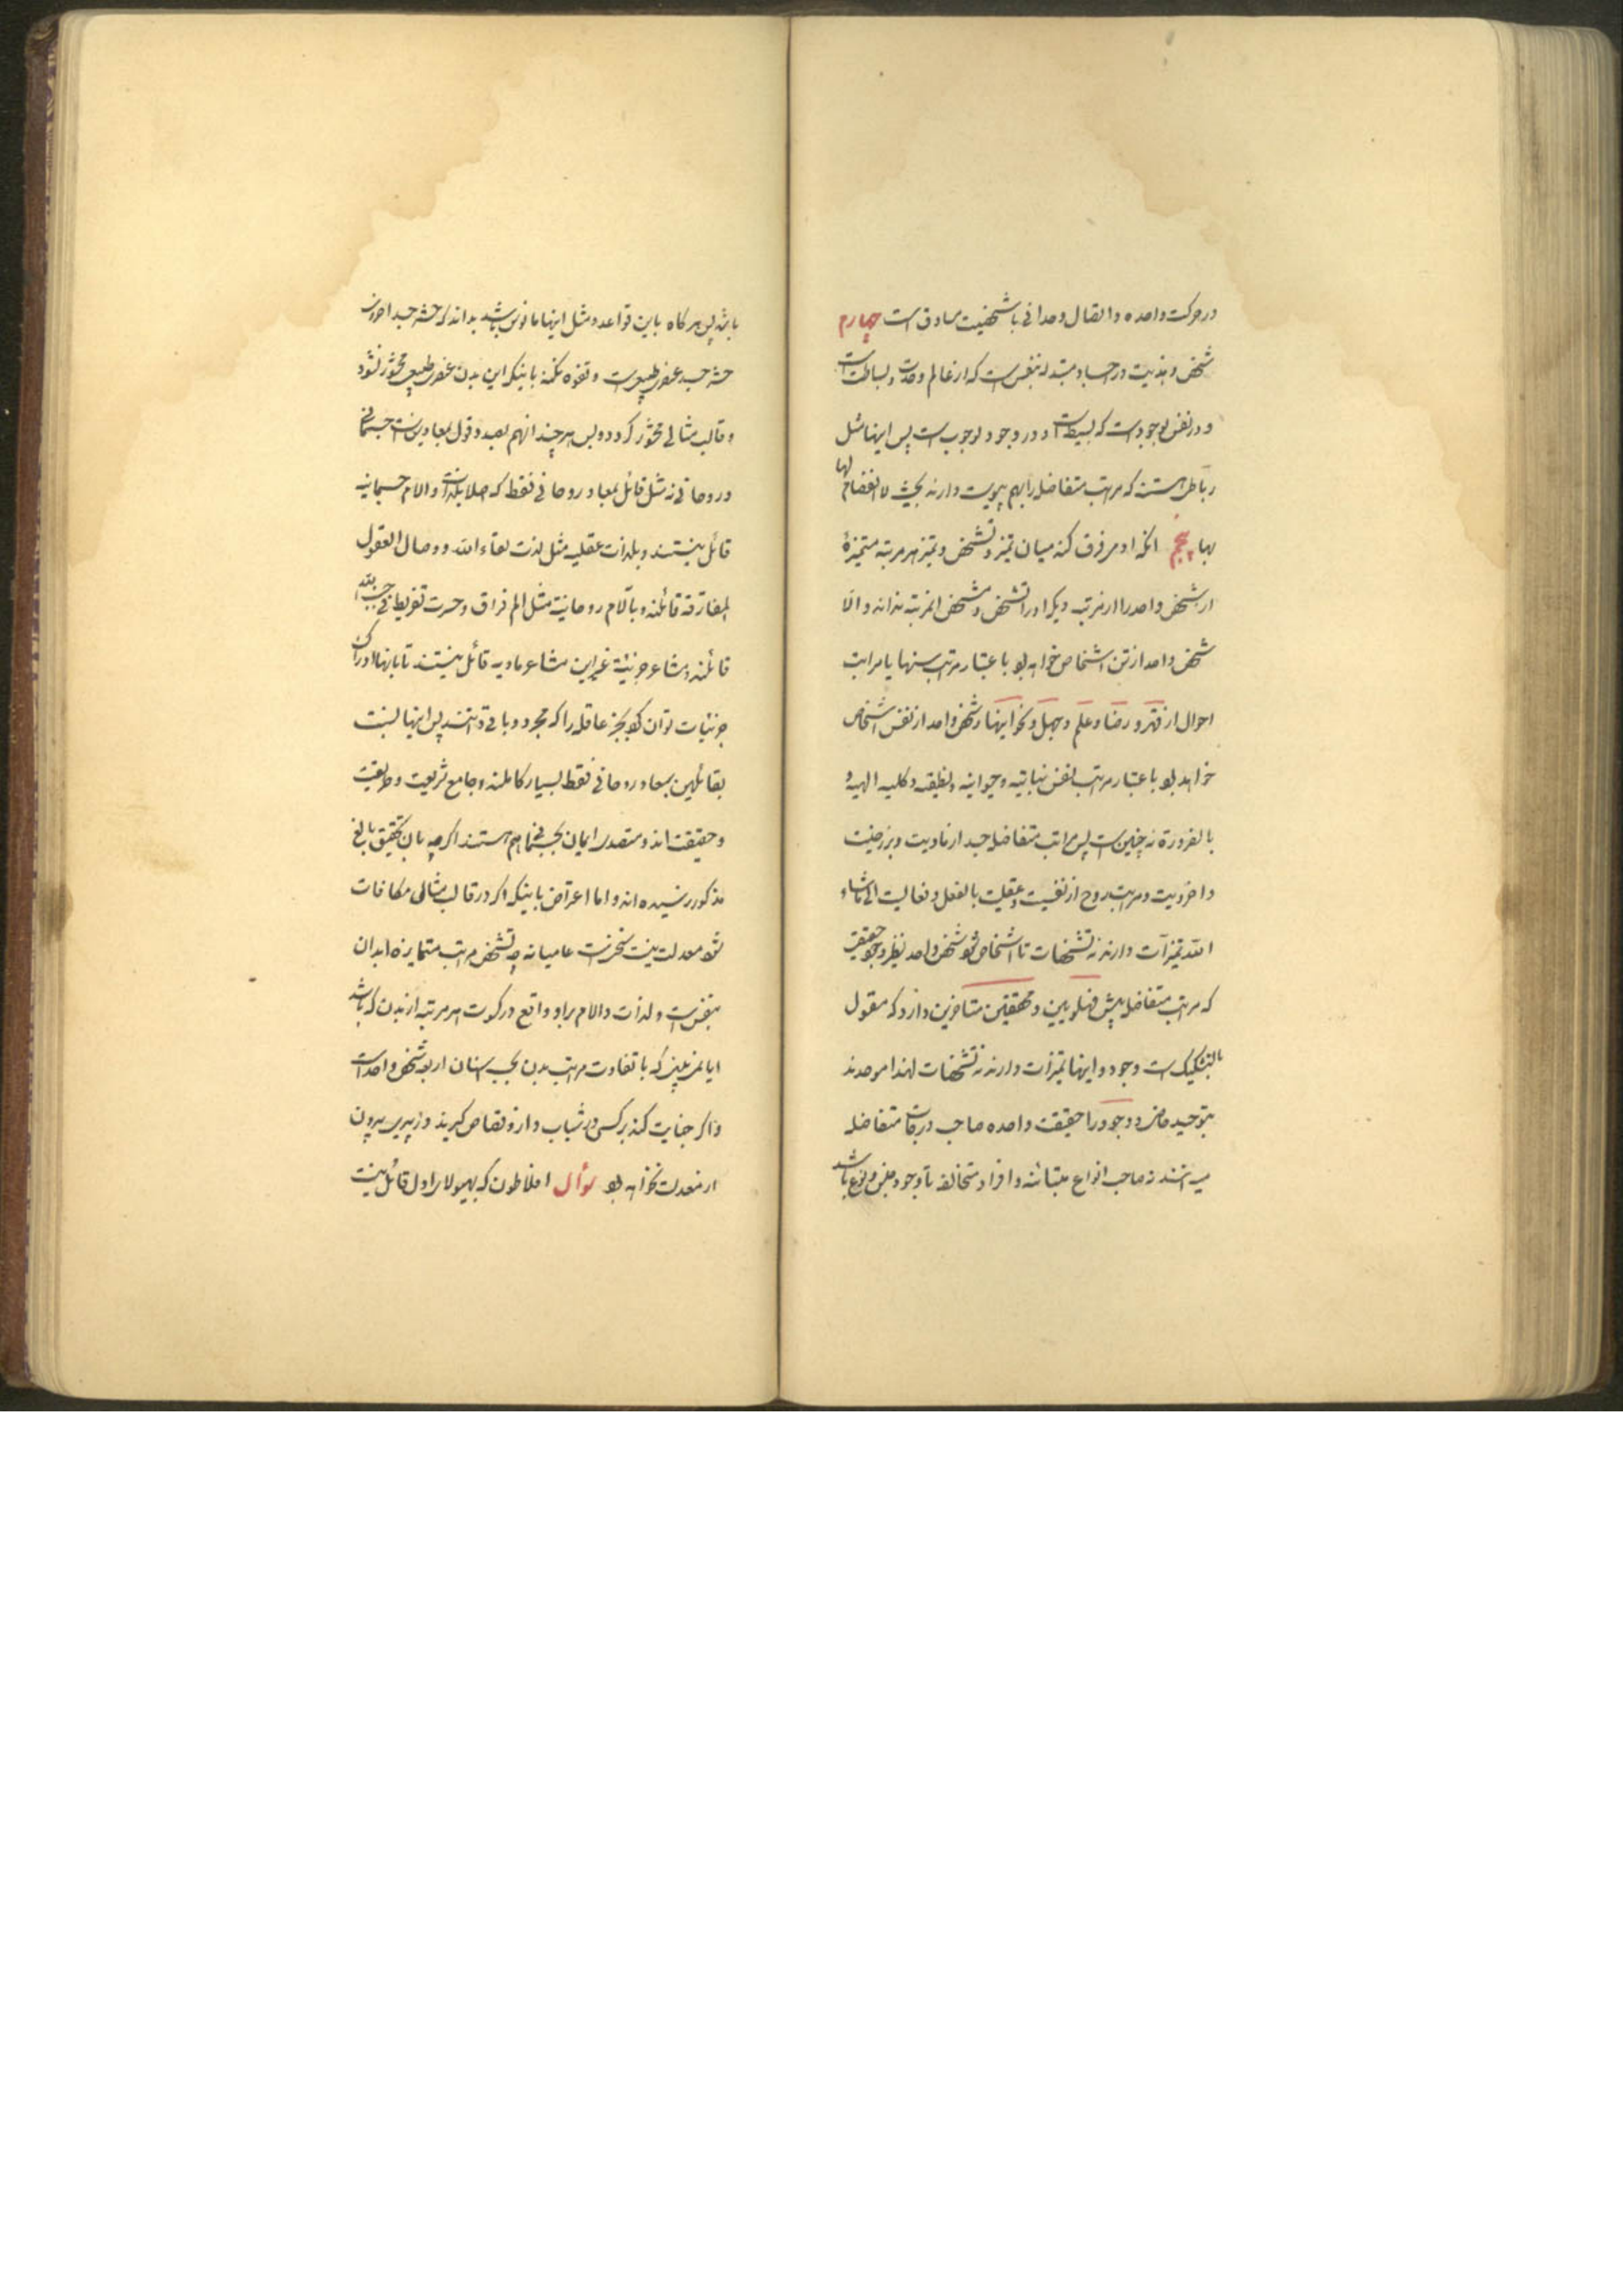 در حرکت واحده و اتصال وحدانی با شخصیت مساوق است چهارم
شخص و هذیت در اجساد متبدله بنفس است که از عالم وحدت و بساطت است
و در نفس بوجود است که بسیط است و در وجود بوجوب است پس اینها مثل
رباطی هستند که مراتب متفاضله را بهم پیوست دارند بحیث لا انفصام لها
بها پنجم آنکه آدمی فرق کند میان تمیز و تشخص و تمیز هر مرتبه متمیزهٔ
از شخص واحد را از مرتبه دیگر او را تشخص و مشخص المرتبه نداند و الّا
شخص واحد از تن اشخاص خواهد بود باعتبار مراتب سنها یا مراتب
احوال از فقر و رضا و علم و جهل و نحو اینها و شخص واحد از نفس اشخاص
خواهد بود باعتبار مراتب نفس نباتیه و حیوانیه و نطقیه و کلیه الهیه و
بالضرورة نه چنین است پس مراتب متفاضله جسد از مادیت و برزخیت
و اخرویت و مراتب روح از نفسیت و عقلیت بالفعل و فعالیت الی ماشاء
الله تمیزات دارند نه تشخصات تا اشخاص شود شخص واحد نظیر وجود حقیقی
که مراتب متفاضله پیش فهلویین و محققین متأخرین دارد که مقول
بالتشکیک است وجود و اینها تمیزات دارند نه تشخصات لهذا موحدند
بتوحید خاص و وجود را حقیقت واحده صاحب درجات متفاضله
می‌دانند نه صاحب انواع متباینه و افراد متخالفه تا وجود جنس و نوع باشد
باشد پس هر گاه باین قواعد و مثل اینها مانوس باشد بداند که حشر جسد اخروی
حشر جسد عنصری طبیعی است و تفوه نکند باینکه این بدن عنصری طبیعی محشور نشود
و قالب مثالی محشور گردد و بس هر چند آنهم بعد و قول بمعادین است جسمانی
و روحانی نه مثل قائل بمعاد روحانی فقط که اصلا بلذات و آلام جسمانیه
قائل نیستند و بلذات عقلیه مثل لذت لقاء الله و وصال العقول
المفارقة قائلند و بآلام روحانیت مثل الم فراق و حسرت تفریط فی جنب الله
قائلند و مشاعر جزئیهٔ غیر این مشاعر مادیه قائل نیستند تا بانها ادراک
جزئیات توان کرد بجز عاقله را که مجرد و باقی دانستند پس اینها نسبت
بقائلین بمعاد روحانی فقط بسیار کاملند و جامع شریعت و طریقت
و حقیقت‌اند و متصدی ایمان بجسمانی هم هستند اگر چه بان تحقیق بالغ
مذکور نرسیده‌اند و اما اعتراض باینکه اگر در قالب مثالی مکافات
شود معدلت نیست سخنی است عامیانه چه تشخص مراتب متمایزه ابدان
بنفس است و لذات و الام بر او واقع در کسوت هر مرتبه از بدن که باشد
ایا نمی‌بینی که با تفاوت مراتب بدن بحسب اسنان اربعه شخص واحد است
و اگر جنایت کند بر کسی در شباب و از و قصاص گیرند در پیری بیرون
از معدلت نخواهد بود سؤال افلاطون که بهیولای اولی قائل نیست